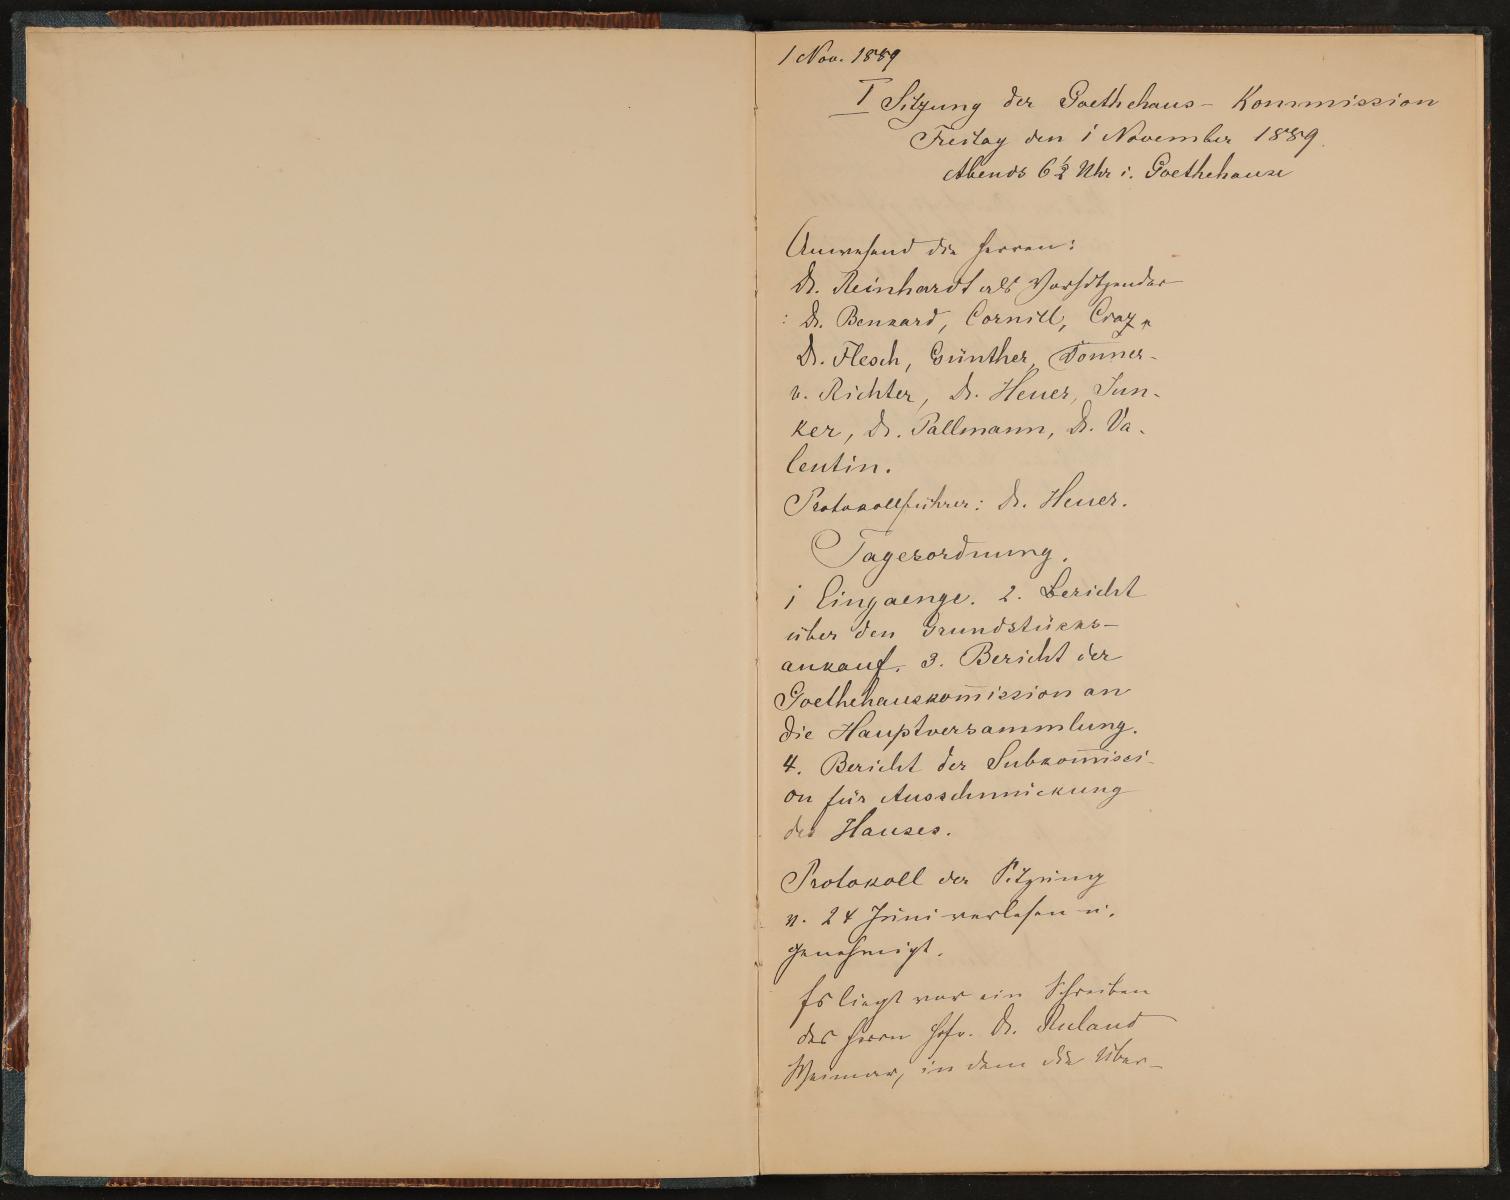 1 Nov. 1889
I Sitzung der Goethehaus- Kommission
Freitag den 1 November 1889.
Abends 6½ Uhr i. Goethehause
Anwesend die Herren:
Dr. Reinhardt als Vorsitzender
: Dr. Benkard, Cornill, Cray,
Dr. Flesch, Günther, Donner-
v. Richter, Dr. Heuer, Jun-
ker, Dr. Pallmann, Dr. Va-
lentin.
Protokollführer: Dr. Heuer.
Tagesordnung.
1 Eingaenge. 2. Bericht
über den Grundstücks-
ankauf. 3. Bericht der
Goethehauskom̅ission an
die Hauptversammlung.
4. Bericht der Subkom̅issi-
on für Ausschmückung
des Hauses.
Protokoll der Sitzung
v. 24 Juni verlesen u.
genehmigt.
Es liegt vor ein Schreiben
des Herrn Hofr. Dr. Ruland
Weimar, in dem die Über-